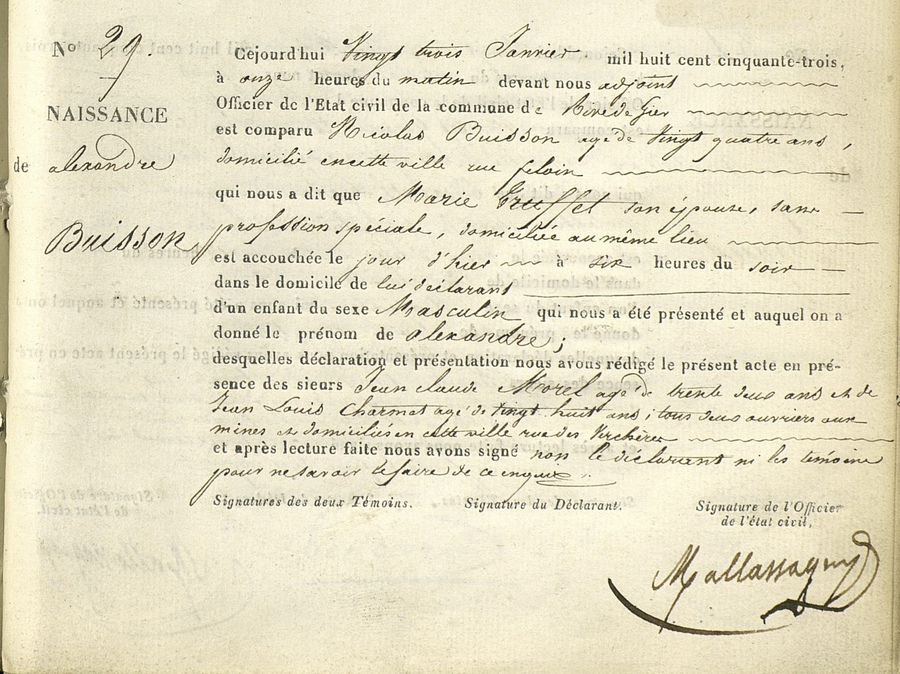 No 29.
NAISSANCE
de alexandre
Buisson
Cejourd'hui Vingt trois Janvier mil huit cent cinquante-trois,
à onze heures du matin devant nous adjoint
Officier de l'Etat civil de la commune de Rive de Gier
est comparu Nicolas Buisson age de Vingt quatre ans,
domicilié en cette ville rue feloin
qui nous a dit que Marie Truffet son épouse, sans
profession spéciale, domiciliée au même lieu
est accouchée le jour d'hier à six heures du soir
dans le domicile de lui déclarant
d'un enfant du sexe Masculin qui nous a été présenté et auquel on a
donné le prénom de alexandre;
desquelles déclaration et présentation nous avons rédigé le présent acte en pré-
sence des sieurs Jean claude Morel age de trente deux ans et de
Jean Louis Charmet age de vingt huit ans; tous deux ouvriers aux
mines et domiciliés en cette ville rue des Verchères
et après lecture faite nous avons signé non le déclarant ni les temoins
pour ne savoir le faire de ce enquis.
Signatures des deux Témoins. Signature du Déclarant. Signature de l'Officier
de l'état civil,